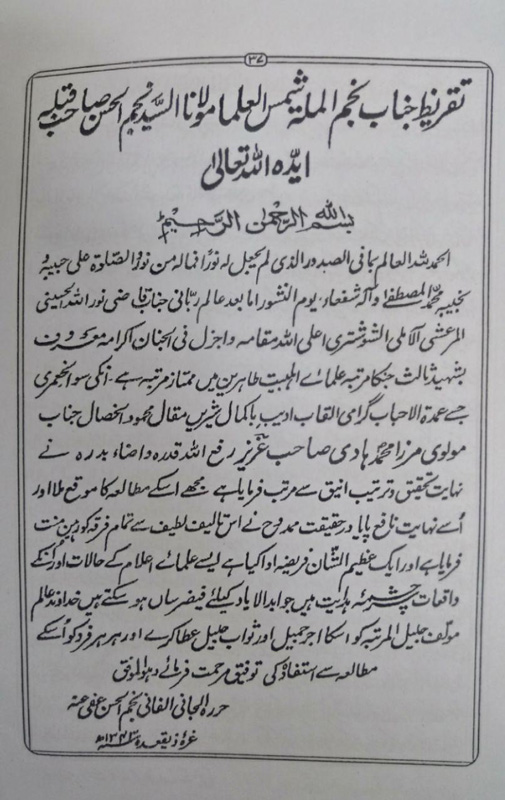 ۳۷
تقریظ جناب نجم الملۃ شمس العلما مولانا السید نجم الحسن صاحب قبلہ
ایدہ اللہ تعالیٰ
بسم اللہ الرحمٰن الرحیم
الحمد للہ العالم بما فی الصدور الذی لم یجعل لہ نورا فمالہ من نور والصلوۃ علی حبیبہ و
نجیبہ محمد المصطفےٰ وآلہ شفعاء یوم النشور اما بعد عالم ربانی جناب قاضی نور اللہ الحسینی
المرعشی الآملی الشوشتری اعلی اللہ مقامہ واجزل فی الجنان اکرامہ معروف
بشہید ثالث جنکا مرتبہ علمائے اہلبیت طاہرین میں ممتاز مرتبہ ہے۔ انکی سوانحعمری
جسے عمدۃ الاحباب گرامی القاب ادیب باکمال شیریں مقال محمود الخصال جناب
مولوی مرزا محمد ہادی صاحب عزیز رفع اللہ قدرہ واضاء بدرہ نے
نہایت تحقیق و ترتیب انیق سے مرتب فرمایا ہے مجھے اسکے مطالعہ کا موقع ملا اور
اُسے نہایت نافع پایا درحقیقت ممدوح نے اس تالیف لطیف سے تمام فرقہ کو رہین منت
فرمایا ہے اور ایک عظیم الشان فریضہ ادا کیا ہے ایسے علمائے اعلام کے حالات اور انکے
واقعات سرچشمۂ ہدایت ہیں جو ابدالآباد کیلئے فیضرساں ہو سکتے ہیں خداوند عالم
مولف جلیل المرتبہ کو اسکا اجر جمیل اور ثواب جلیل عطا کرے اور ہر ہر فرد کو اُسکے
مطالعہ سے استفادہ کی توفیق مرحمت فرمائے وہو الموفق
حررہ الجانی الفانی نجم الحسن عفی عنہ
غرہ ذیقعدہ